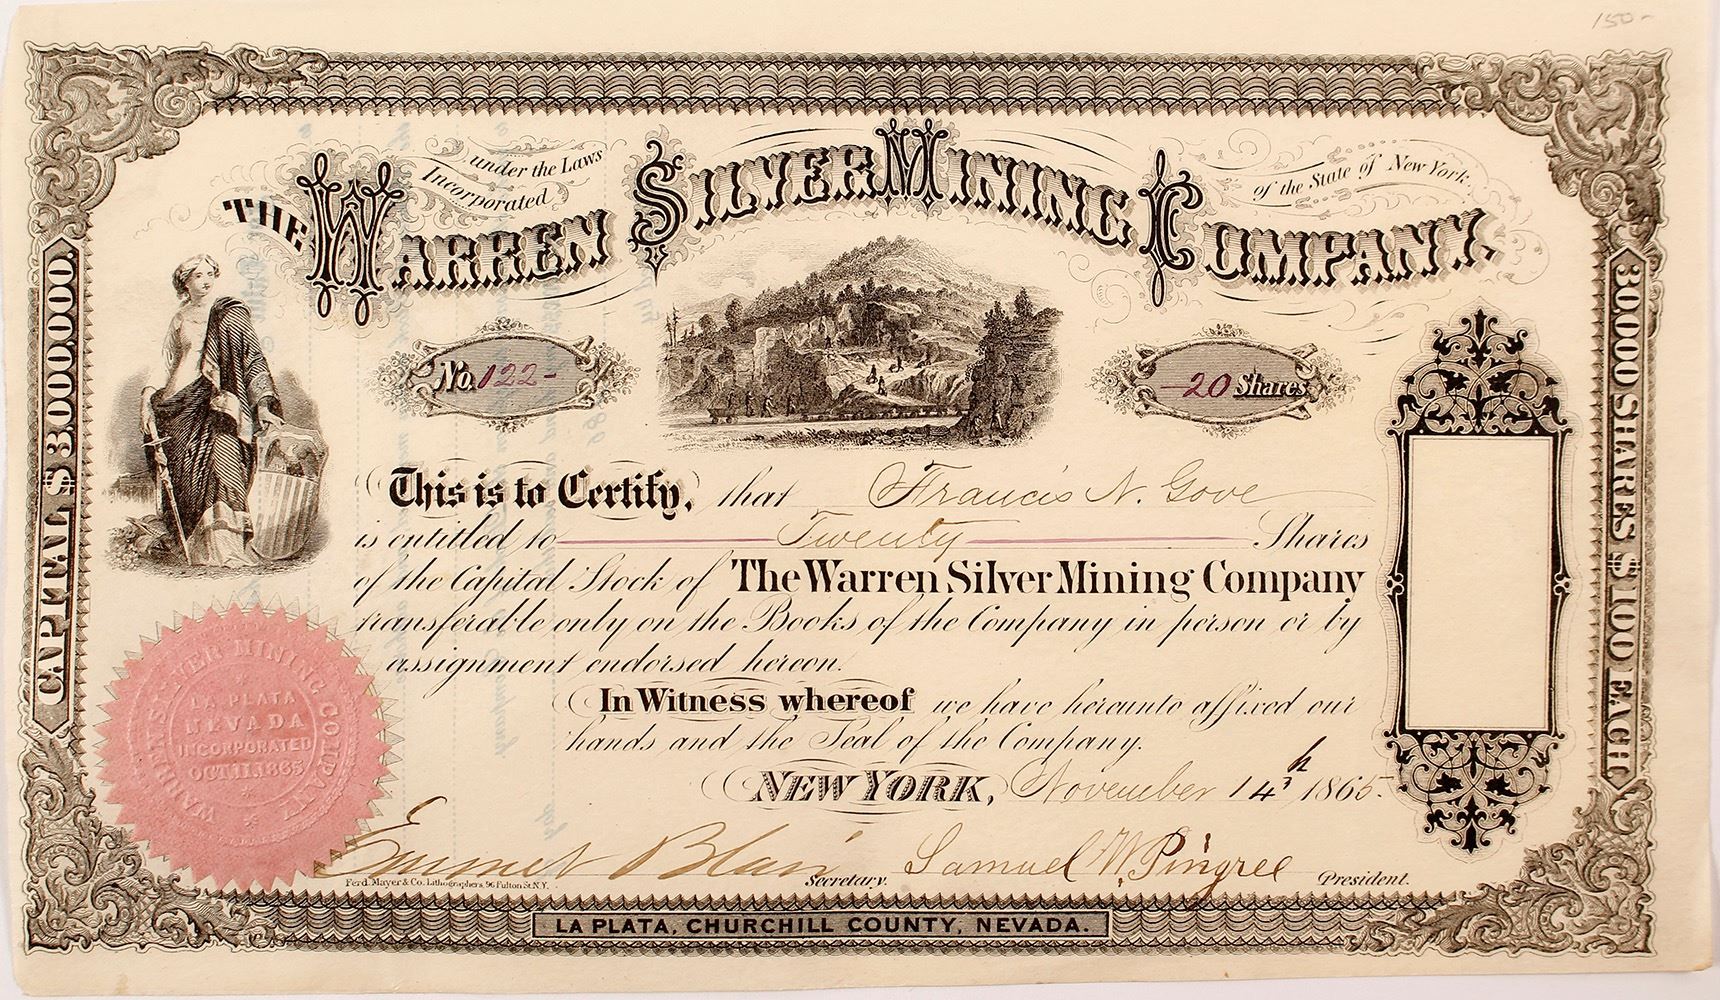 150-
under the Laws
Incorporated
of the State of New York
THE WARREN SILVER MINING COMPANY.
No. 122-
-20 Shares
CAPITAL $3.000.000.
30.000 SHARES $100 EACH
This is to Certify, that Francis N. Gove
is entitled to Twenty Shares
of the Capital Stock of The Warren Silver Mining Company
transferable only on the Books of the Company in person or by
assignment endorsed hereon.
In Witness whereof we have hereunto affixed our
hands and the Seal of the Company.
NEW YORK, November 14th 1865.
WARREN SILVER MINING COMPANY
LA PLATA
NEVADA
INCORPORATED
OCT.11.1865
Emmet Blair Secretary. Samuel W. Pingree President.
Ferd. Mayer & Co. Lithographers, 96 Fulton St. N.Y.
LA PLATA, CHURCHILL COUNTY, NEVADA.